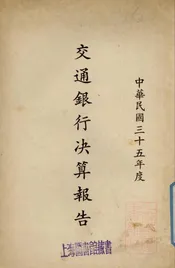 中華民國三十五年度
交通銀行決算報告
上海圖書館藏書